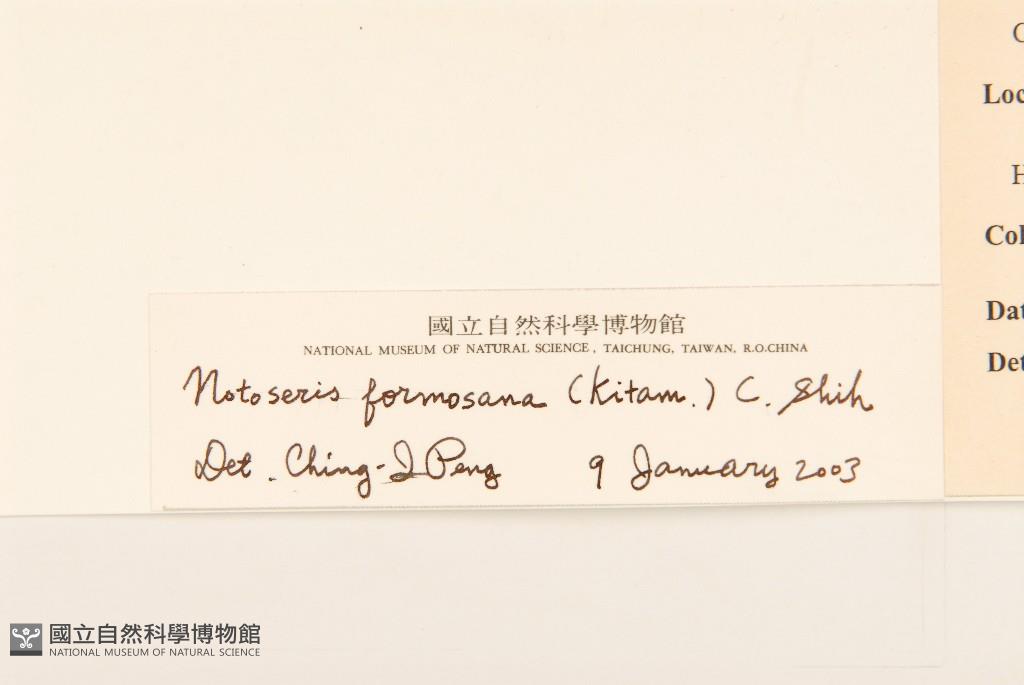 國立自然科學博物館
NATIONAL MUSEUM OF NATURAL SCIENCE, TAICHUNG, TAIWAN, R.O.CHINA
Notoseris formosana (Kitam.) C. Shih
Det. Ching-I Peng 9 January 2003
國立自然科學博物館
NATIONAL MUSEUM OF NATURAL SCIENCE